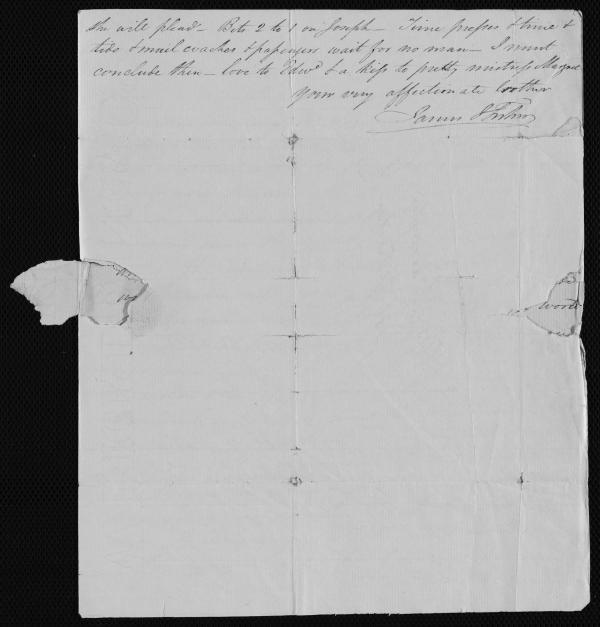 she will plead – Bets 2 to 1 on Joseph – Time presses & time &
tide & mail coaches & passengers wait for no man – I must
conclude then – love to Edwd & a kiss to pretty mistress Margaret
Your very affectionate brother
James
worth